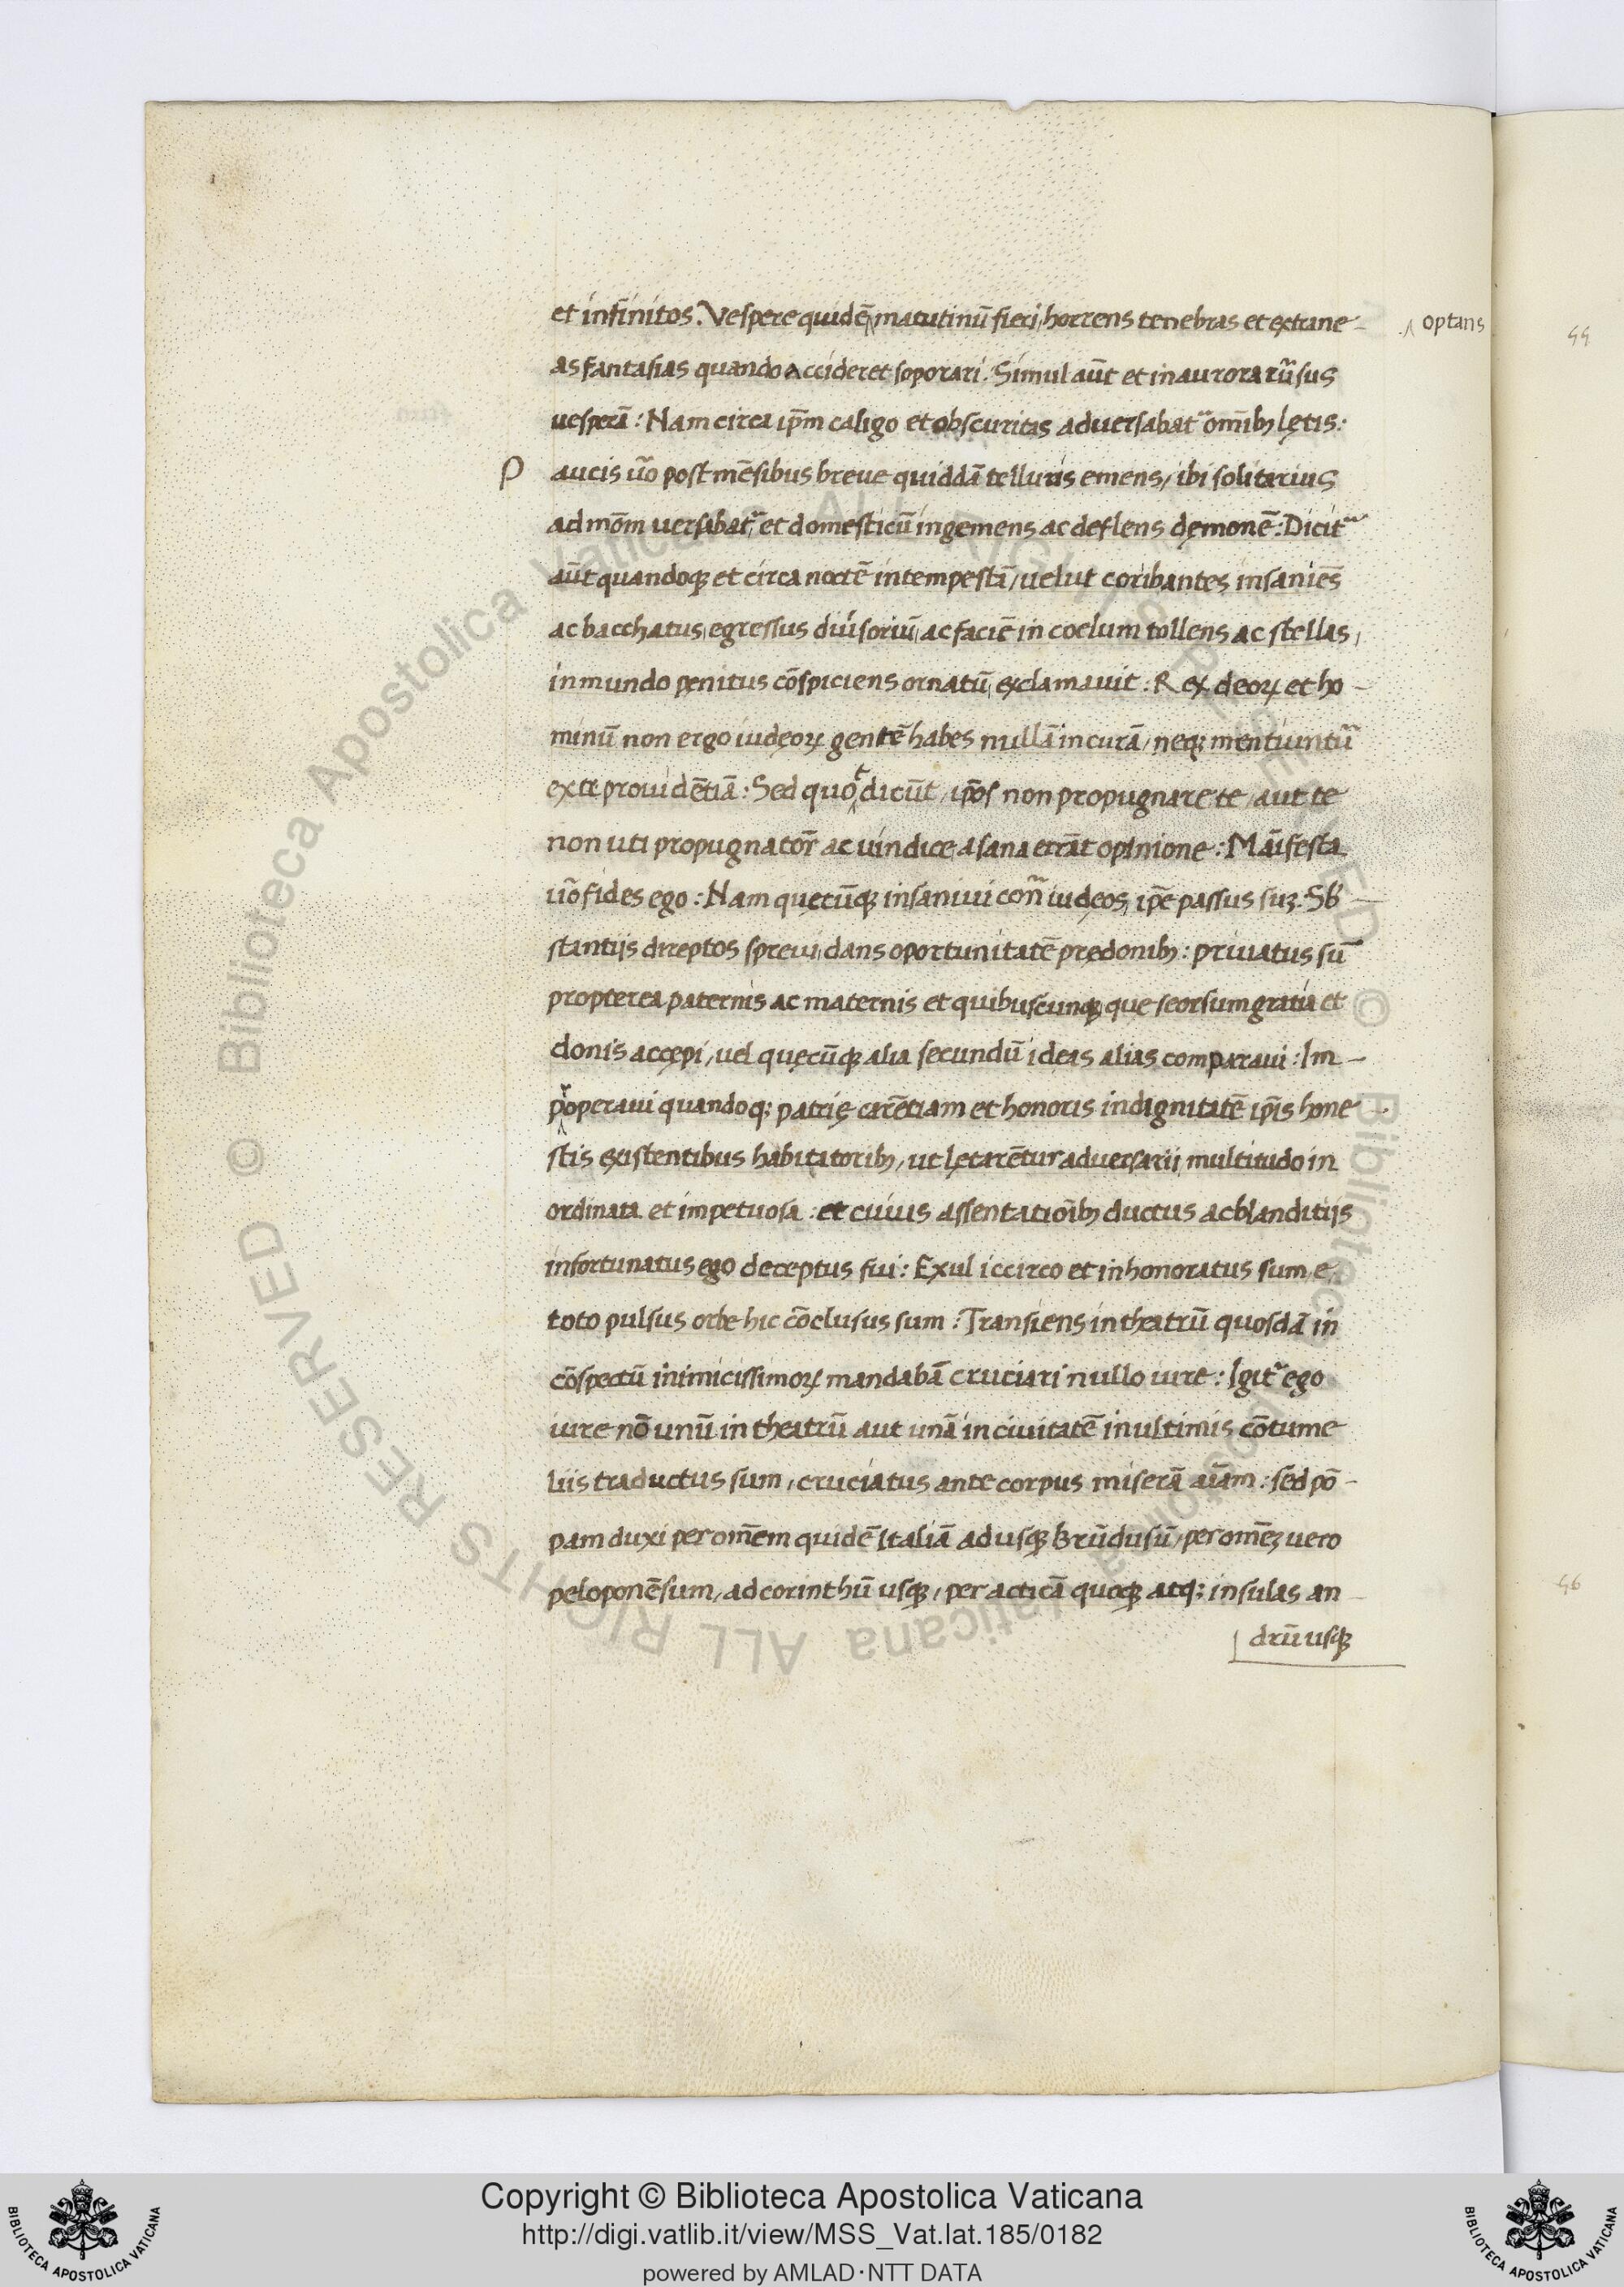 et infinitos. Vespere quidē matutinū fieri, horrens tenebras et extrane- optans
as fantasias quando accideret soporari. Simul aūt et in aurora rūsus
uesperā: Nam circa ip̄m caligo et obscuritas aduersabat᷑ om̄ibꝫ lętis:
P aucis uo᷑ post mēsibus breue quiddā telluris emens, ibi solitarius
ad mōm uersabat᷑, et domesticū ingemens ac deflens dęmonē: Dicit᷑
aūt quandoqꝫ et circa noctē intempestā, uelut coribantes insaniēs
ac bacchatus, egressus diuisoriū, ac faciē in coelum tollens ac stellas,
in mundo pęnitus cōspiciens ornatū, exclamauit: Rex deoꝝ et ho-
minū non ergo iudęoꝝ gentē habes nullā in curā, neqꝫ mentiuntu᷑
ex te prouidētiā: Sed quotdicūt, ip̄os non propugnare te, aut te
non uti propugnator̄ ac uindice, a sana errāt opinione: Māifesta
uo᷑ fides ego: Nam quęcūqꝫ insaniui con᷑ iudęos, ip̄e passus suꝫ. Sb̄-
stantijs direptos spreui, dans oportunitatē prędonibꝫ: priuatus sū
propterea paternis ac maternis et quibuscunqꝫ que seorsum gratia et
donis accępi, uel quęcūqꝫ alia secundū ideas alias comparaui: Im-
properaui quandoqꝫ patrię carētiam et honoris indignitatē ip̄is hone-
stis existentibus habitatoribꝫ, ut lętarētur aduersarii, multitudo in
ordinata et impetuosa: et cuius assentatiōibꝫ ductus ac blanditijs
infortunatus ego deceptus fui: Exul iccirco et inhonoratus sum, e
toto pulsus orbe hic cōclusus sum: Transiens in theatrū quosdā in
cōspectū inimicissimoꝝ mandabā cruciari nullo iure: Igit᷑ ego
iure nō unū in theatrū aut unā in ciuitatē in ultimis cōtume
liis traductus sum, cruciatus ante corpus miserā aīam: sed pō-
pam duxi per om̄em quidē Italiā ad usqꝫ Brūdusū, per om̄eꝫ uero
peloponēsum, ad corinthū usqꝫ, per acticā quoqꝫ atqꝫ insulas an-
drū usqꝫ
55
56
Copyright © Biblioteca Apostolica Vaticana
http://digi.vatlib.it/view/MSS_Vat.lat.185/0182
powered by AMLAD·NTT DATA
BIBLIOTECA APOSTOLICA VATICANA
BIBLIOTECA APOSTOLICA VATICANA
© Biblioteca Apostolica Vaticana ALL RIGHTS RESERVED © Biblioteca Apostolica Vaticana ALL RIGHTS RESERVED